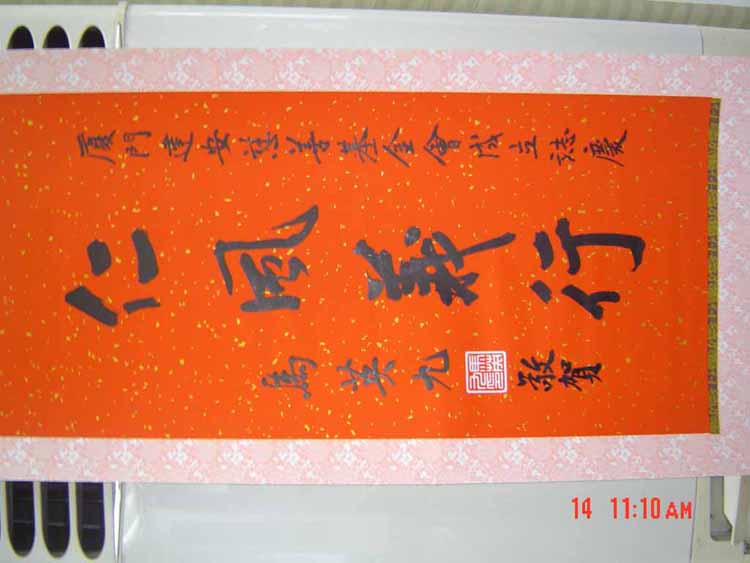 厦門建安慈善基金會成立誌慶
仁風義行
馬英九 敬賀
14 11:10 AM